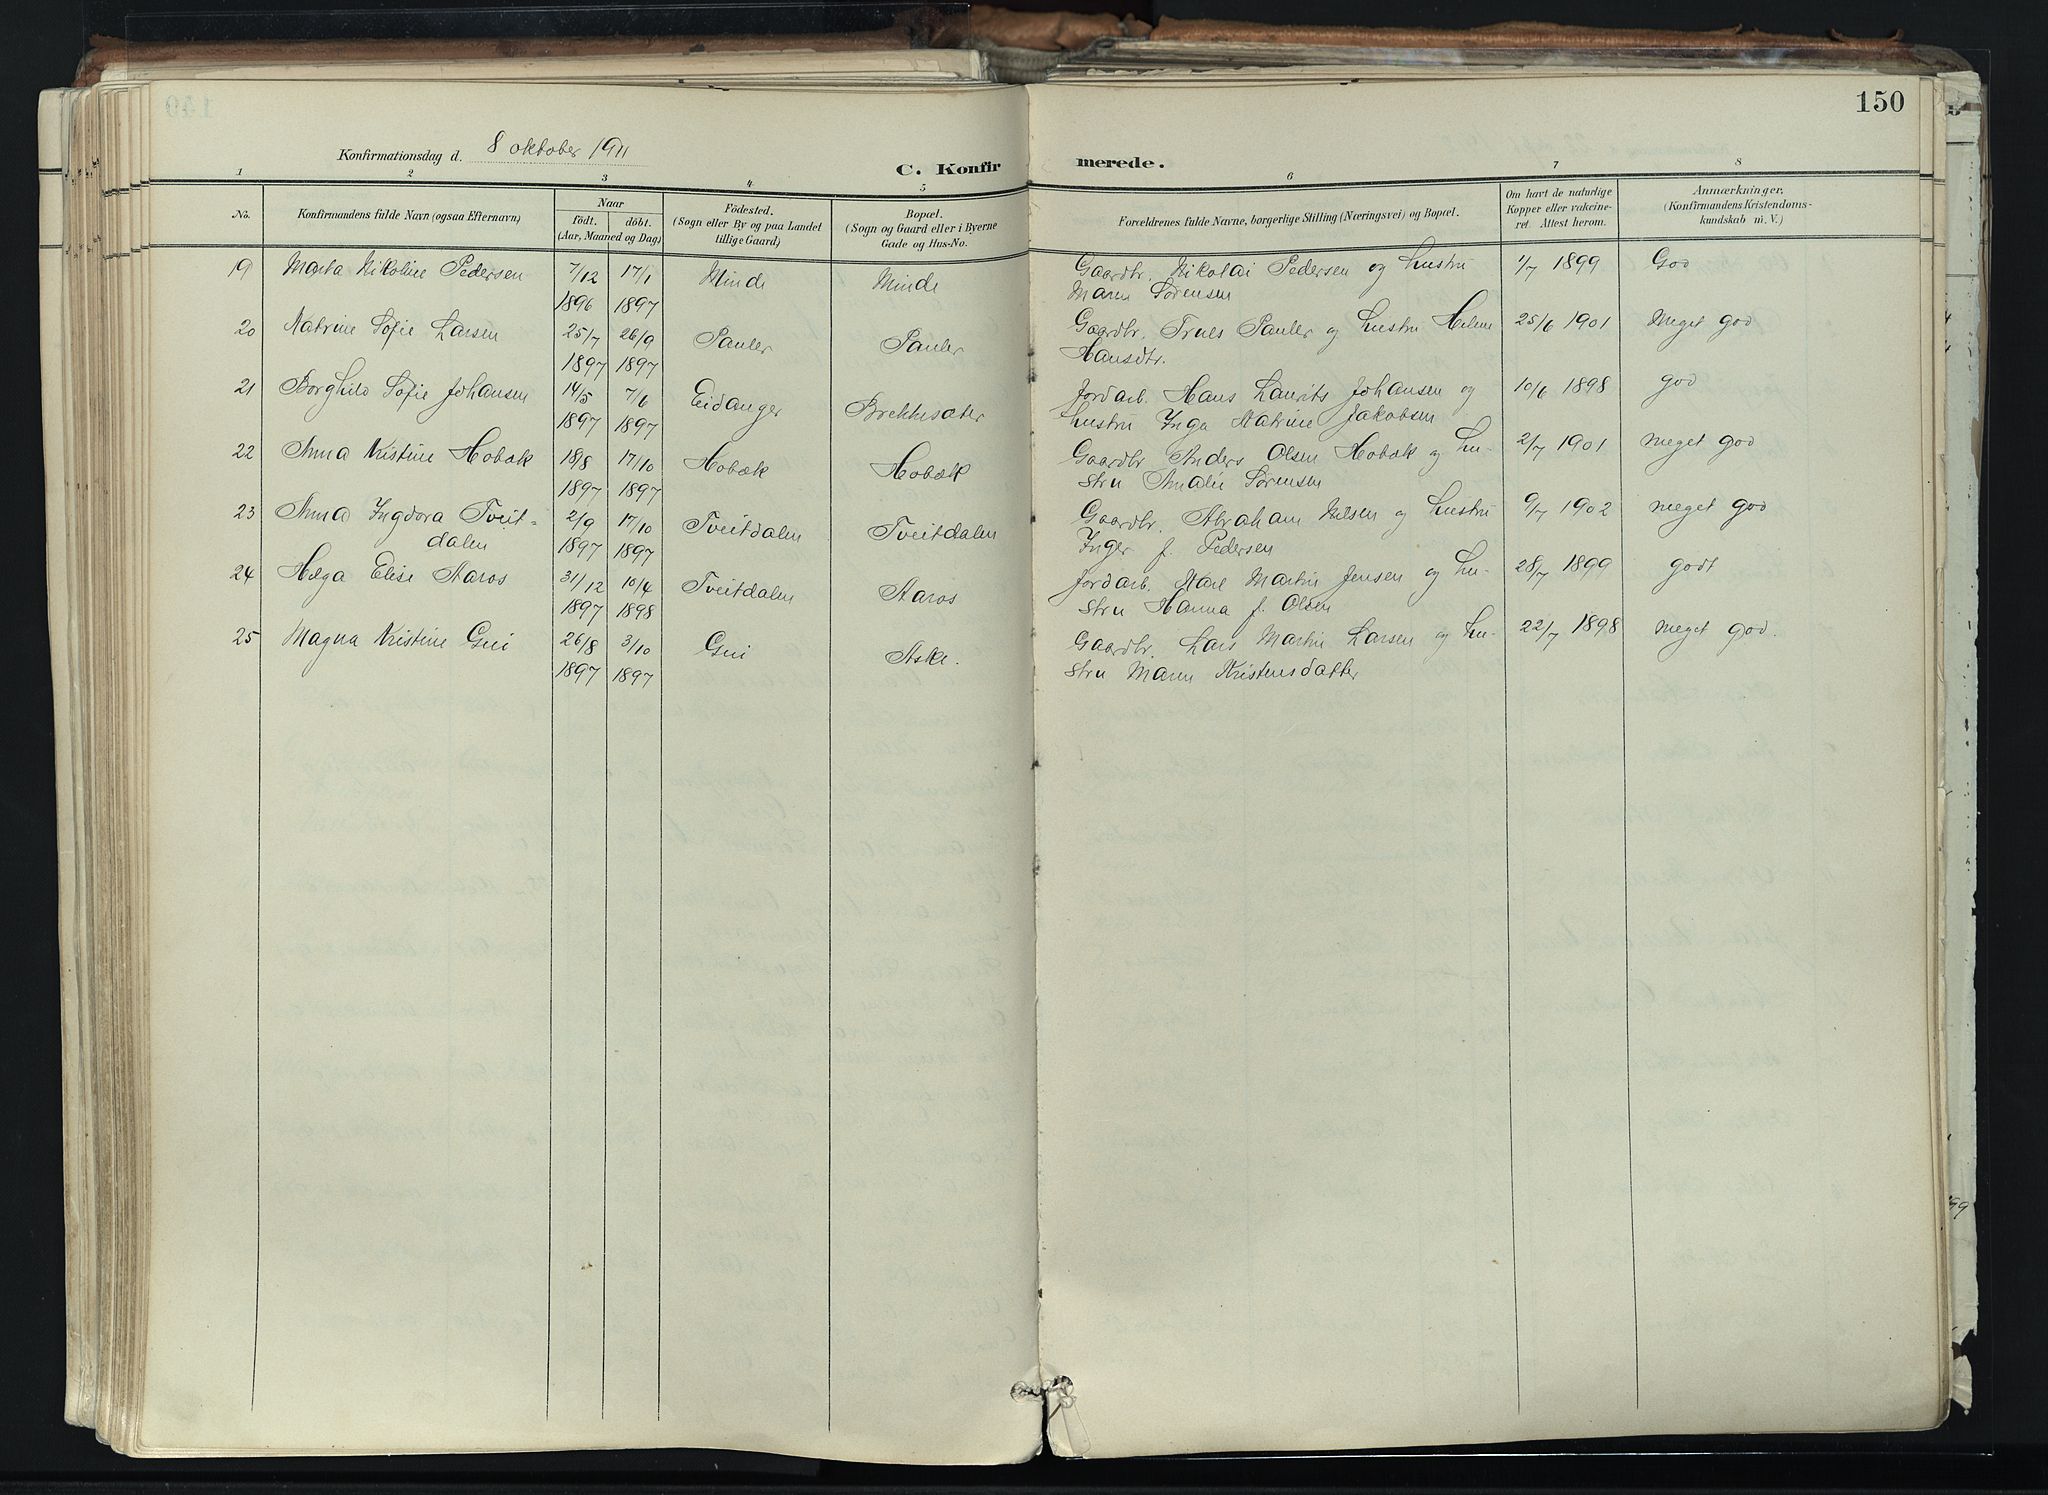 150
Konfirmationsdag d. 8 oktober 1911
C. Konfirmerede.
1 2 3 4 5 6 7 8
No.
Konfirmandens fulde Navn (ogsaa Efternavn)
Naar
födt. döbt.
(Aar, Maaned og Dag)
Födested.
(Sogn eller By og paa Landet
tillige Gaard)
Bopæl.
(Sogn og Gaard eller i Byerne
Gade og Hus-No.
Forældrenes fulde Navne, borgerlige Stilling (Næringsvei) og Bopæl.
Om havt de naturlige
Kopper eller vakcine-
ret. Attest herom.
Anmærkninger,
(Konfirmandens Kristendoms-
kundskab m. V.)
19 Marta Nikoline Pedersen 7/12 17/1 Minde Minde Gaardbr. Nikolai Pedersen og hustru 1/7 1899 God
1896 1897 Maren Sørensen
20 Katrine Sofie Larsen 25/7 26/9 Pauler Pauler Gaardbr. Truls Pauler og hustru Helene 25/6 1901 Meget god
1897 1897 Hansdtr.
21 Borghild Sofie Johansen 14/5 7/6 Eidanger Brekkesæter Jordarb. Hans Laurits Johansen og 10/6 1898 god
1897 1897 hustru Inga Katrine Jakobsen
22 Anna Kristine Hobæk 18/8 17/10 Hobæk Hobæk Gaardbr Anders Olsen Hobæk og hu- 2/7 1901 meget god
1897 1897 stru Amalie Sørensen
23 Anna Ingdora Tveit- 2/9 17/10 Tveitdalen Tveitdalen Gaardbr. Abraham Nilsen og hustru 9/7 1902 meget god
dalen 1897 1897 Inger f. Pedersen
24 Helga Elise Aaros 31/12 10/4 Tveitdalen Aaros Jordarb. Karl Martin Jensen og hu- 28/7 1899 godt
1897 1898 stru Hanna f. Olsen
25 Magna Kristine Gui 26/8 3/10 Gui Aske. Gaardbr. Lars Martin Larsen og hu- 22/7 1898 meget god.
1897 1897 stru Maren Kristensdatter